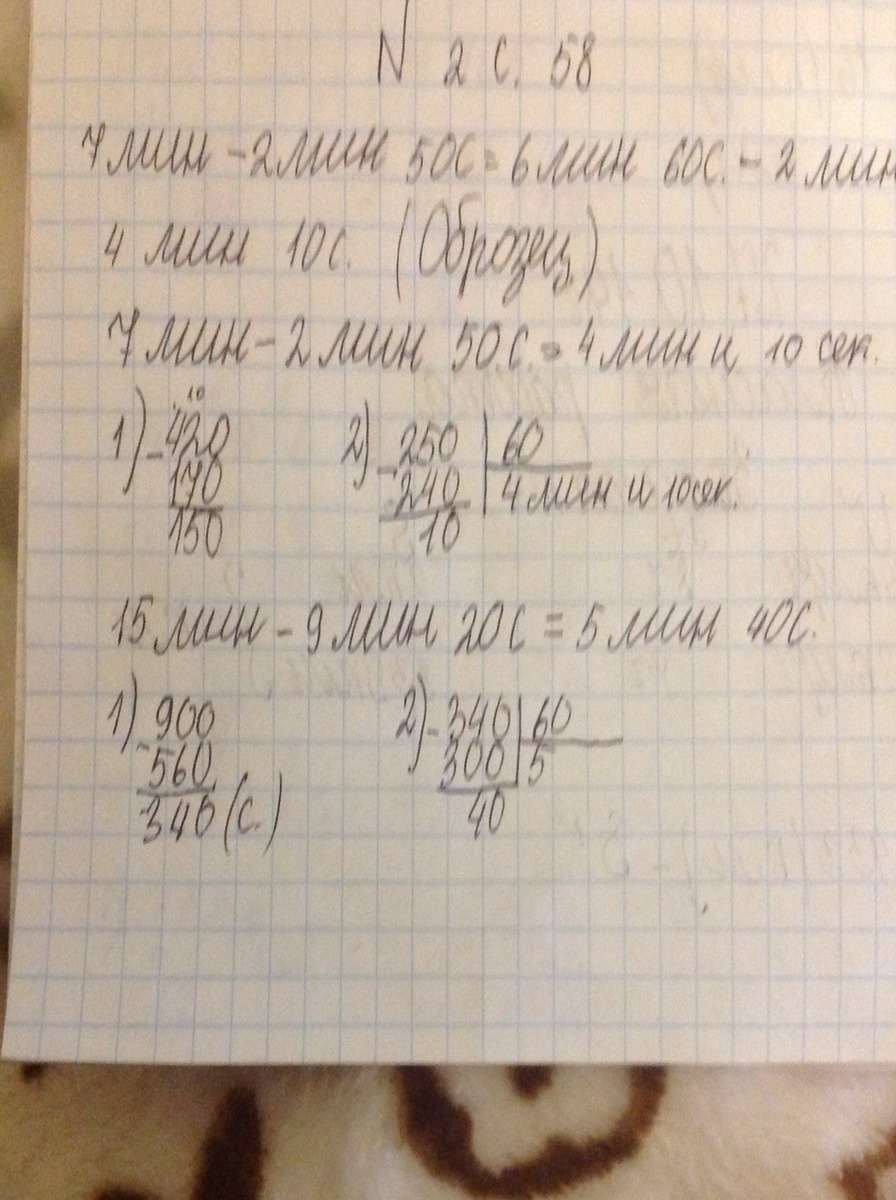 N 2 с. 58
7 мин - 2 мин 50с = 6 мин 60с. - 2 мин
4 мин 10с. (Оброзец.)
7 мин - 2 мин 50.с. = 4 мин и 10 сек.
10
1) - 420 2) - 250 | 60
170 240 | 4 мин и 10 сек.
150 10
15 мин - 9 мин 20с = 5 мин 40с.
1) - 900 2) - 340 | 60
560 300 | 5
340 (с.) 40